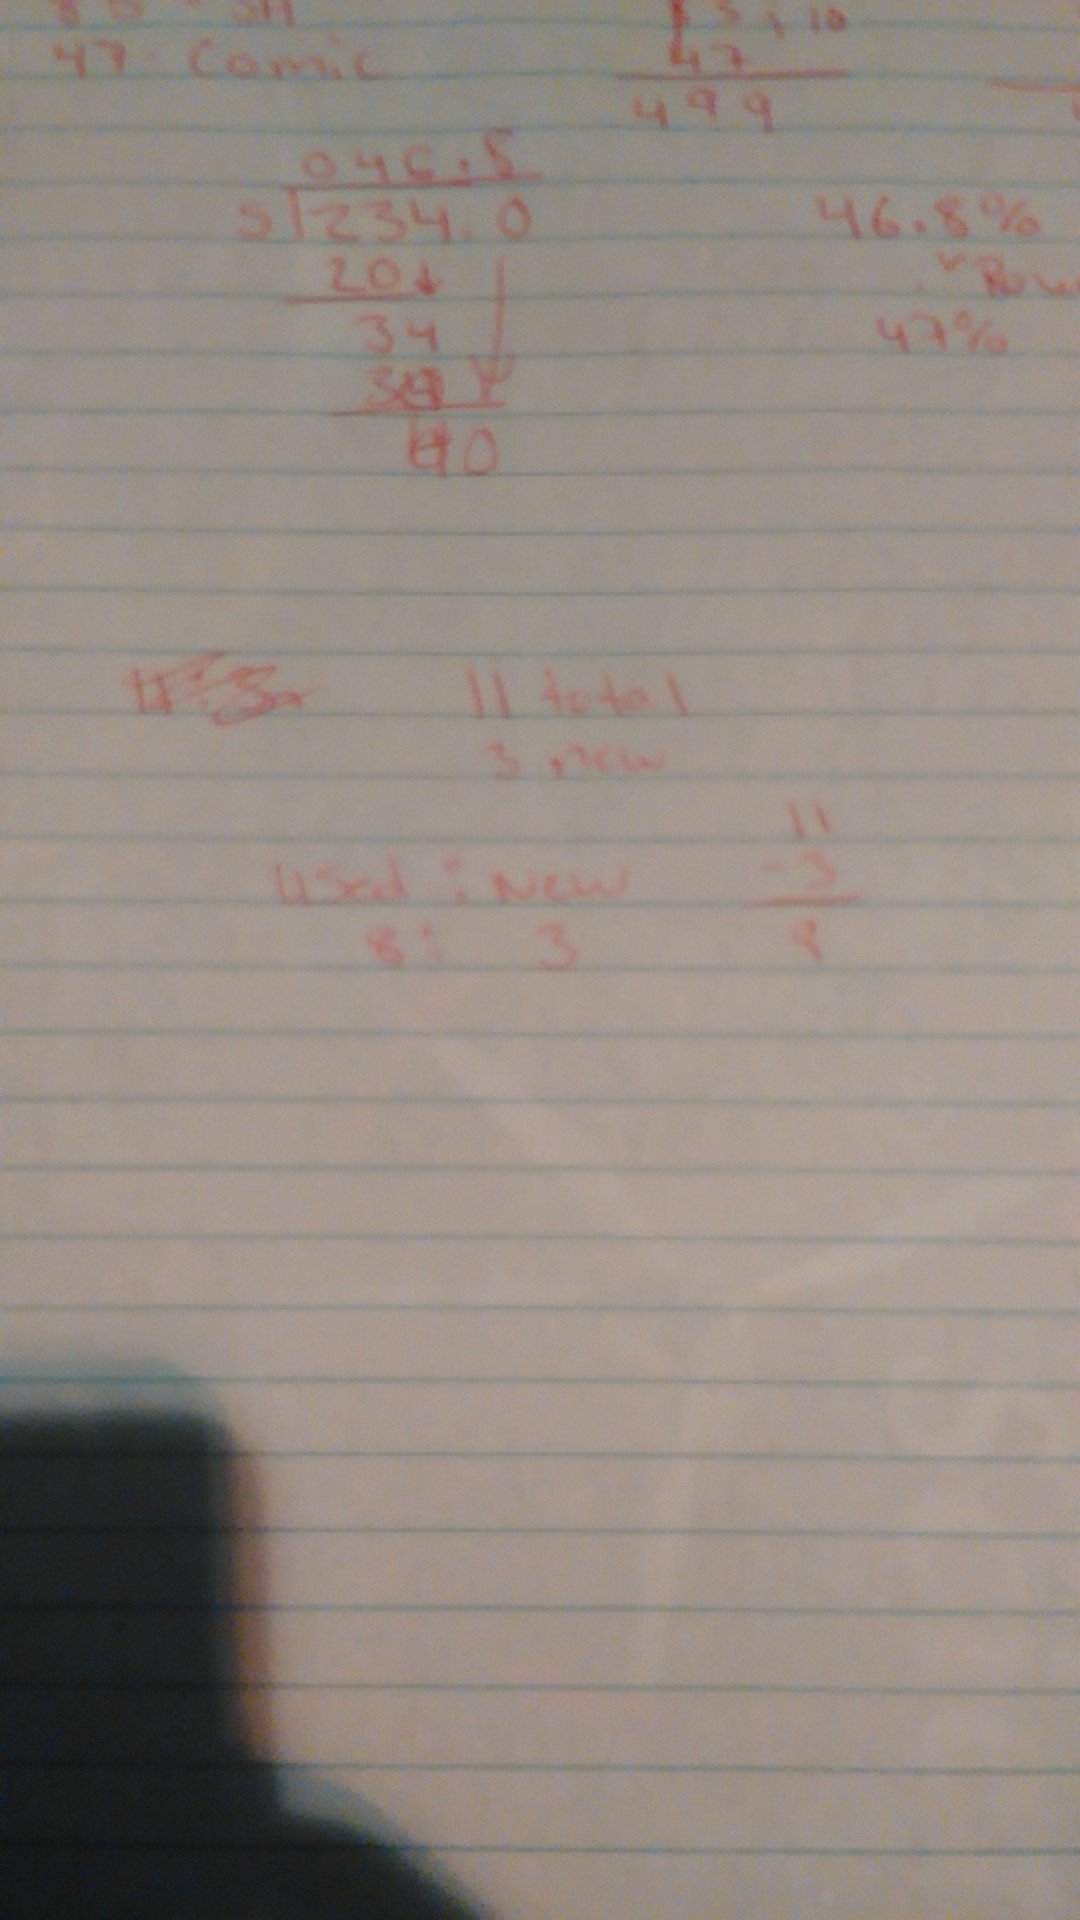 47 - Comic
47
499
046.8
5 234.0
20
34
30
40
46.8%
47%
11 total
3 new
Used : New
8 : 3
11
- 3
8